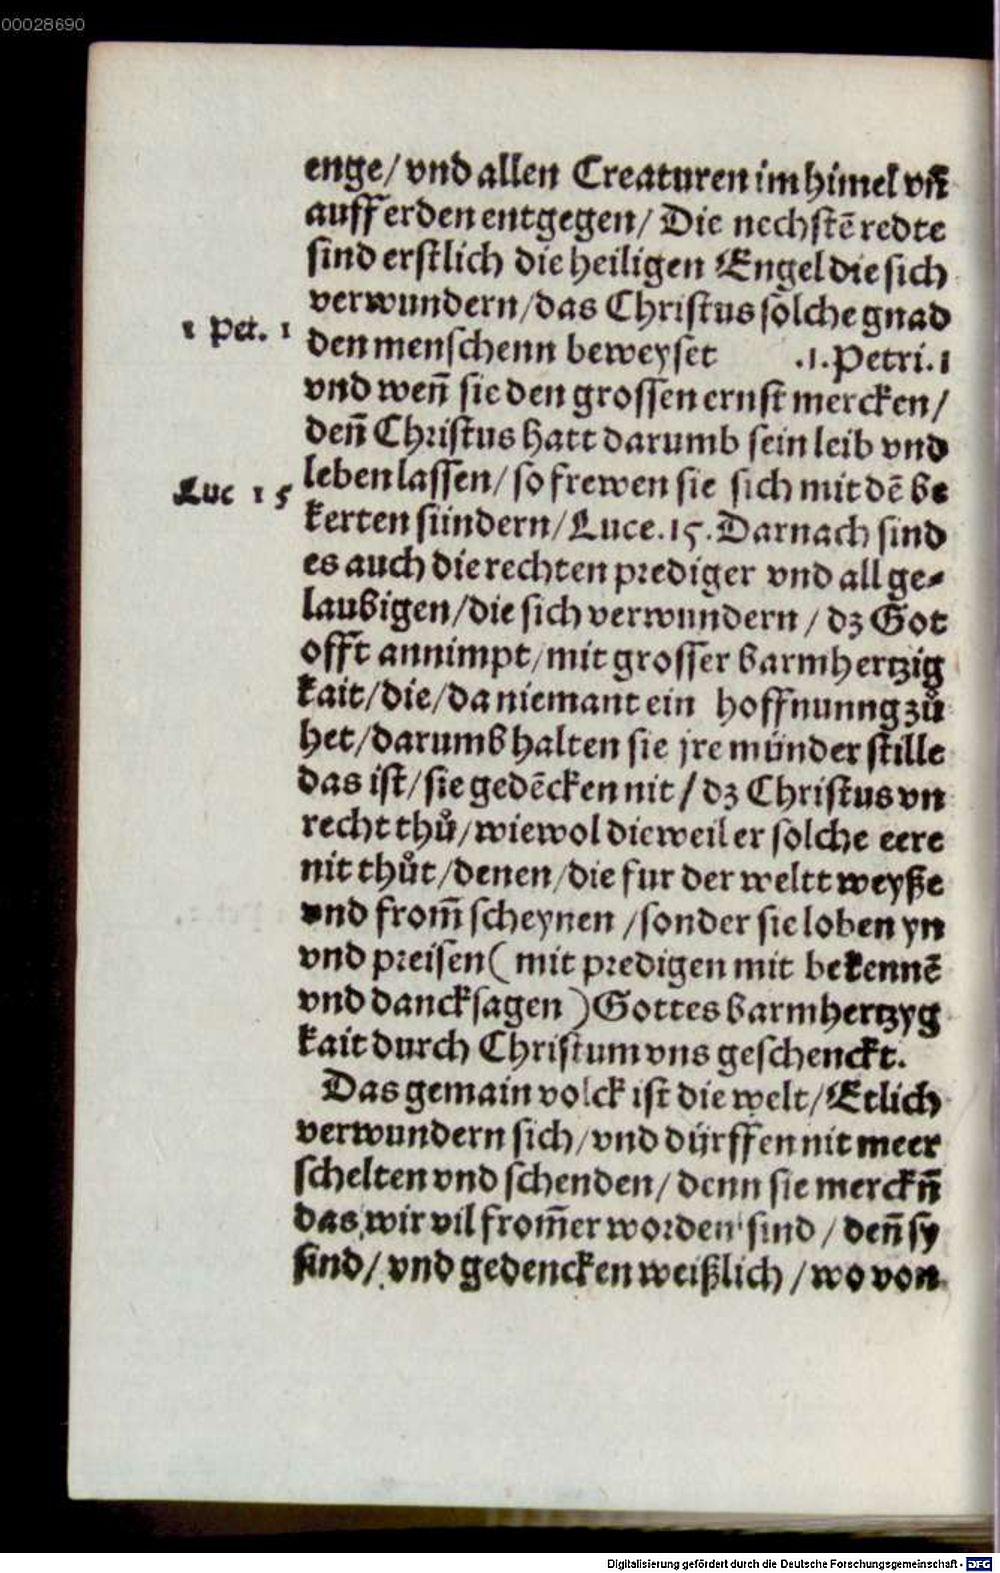 00028690
enge/ vnd allen Creaturen im himel vñ
auff erden entgegen/ Die nechstē redte
sind erstlich die heiligen Engel die sich
verwundern/das Christus sölche gnad
1 Pet. 1
den menschenn beweyset .1.Petri.1
vnd weñ sie den grossen ernst mercken/
deñ Christus hatt darumb sein leib vnd
Luc 15
leben lassen/ so frewen sie sich mit dē be
kerten sündern/Luce.15.Darnach sind
es auch die rechten prediger vnd all ge-
laubigen/die sich verwundern / dz Got
offt annimpt/mit grosser barmhertzig
kait/die/da niemant ein hoffnunng zů
het/darumb halten sie jre münder stille
das ist/sie gedēcken nit/ dz Christus vn
recht thů/wiewol dieweil er solche eere
nit thůt/denen/die fur der weltt weyße
vnd from̄ scheynen /sonder sie loben yn
vnd preisen( mit predigen mit bekennē
vnd dancksagen )Gottes barmhertzyg
kait durch Christum vns geschenckt.
Das gemain volck ist die welt/Etlich
verwundern sich/vnd dürffen nit meer
schelten vnd schenden/ denn sie merckñ
das wir vil from̄er worden sind / deñ sy
sind/ vnd gedencken weißlich /wo von
Digitalisierung gefördert durch die Deutsche Forschungsgemeinschaft - DFG